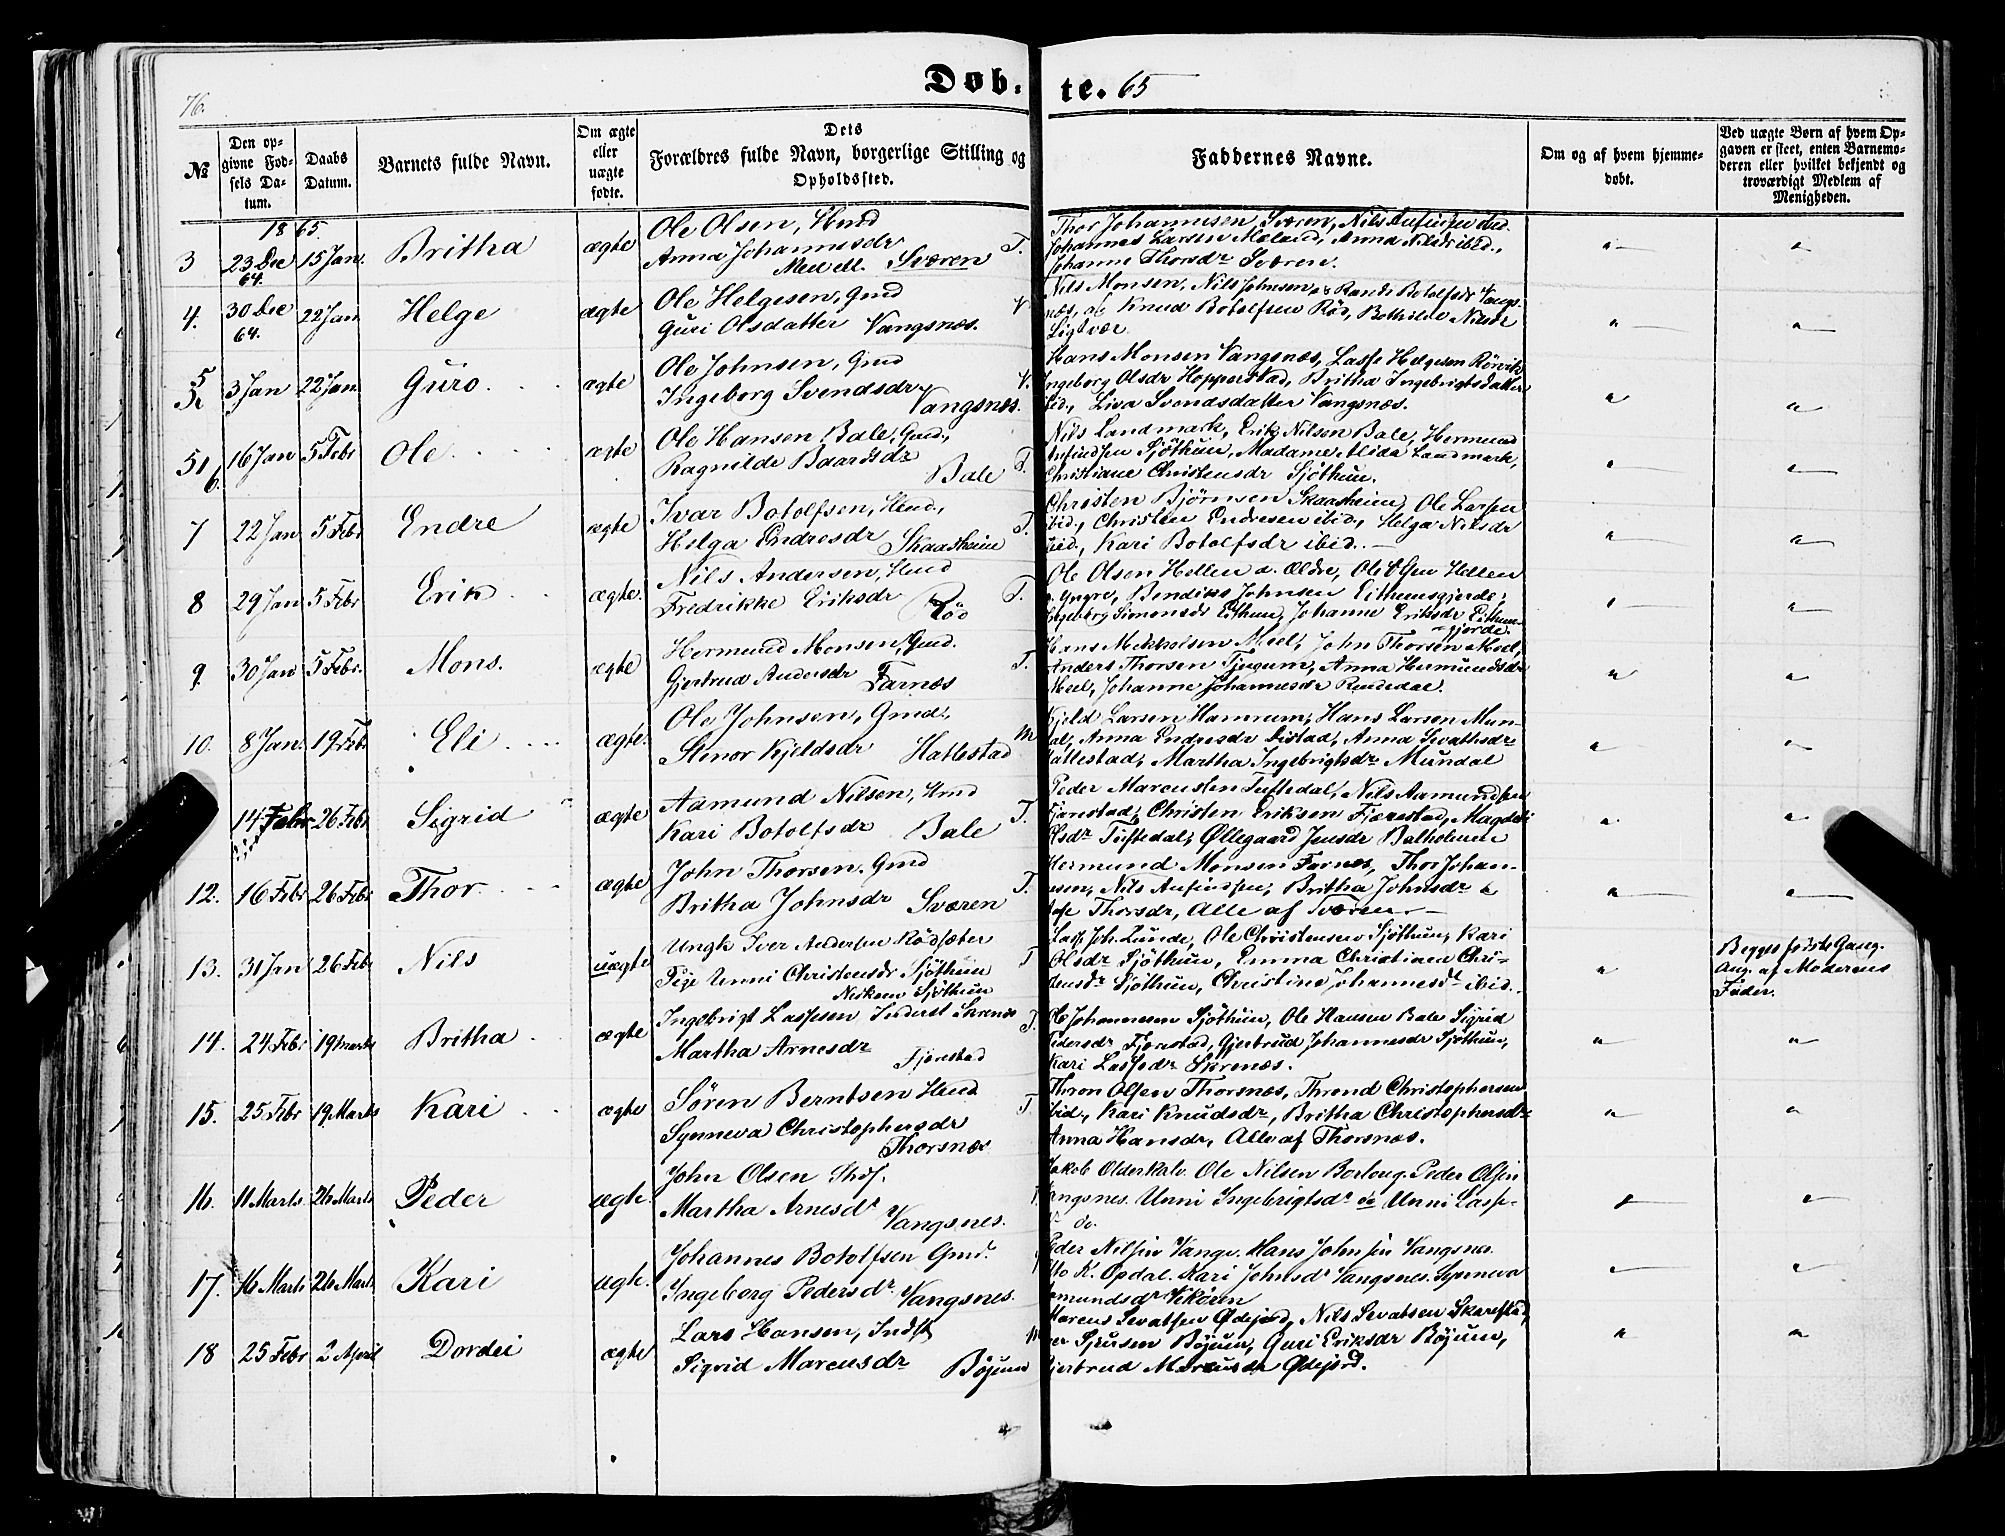 76.
Døb- te. 65
№
Den opgivne Fødsels Datum.
Daabs Datum.
Barnets fulde Navn.
Om ægte eller uægte fødte.
Dets Forældres fulde Navn, borgerlige Stilling og Opholdssted.
Faddernes Navne.
Om og af hvem hjemmedøbt.
Ved uægte Børn af hvem Opgaven er skeet, enten Barnemoderen eller hvilket bekjendt og troværdigt Medlem af Menigheden.
1865.
3 23 Dec 64. 15 Jan. Britha ægte
Ole Olsen, Hmd
Anna Johannesdr
Mevell. Sværen T.
Thor Johannesen Sværen, Nils Anfinsen ibid.
Johannes Larsen Mæland, Anna Nilsdr ibid.,
Johanne Thorsdr Sværen.
4. 30 Dec 64. 22 Jan Helge ægte
Ole Helgesen, Gmd
Guri Olsdatter Vangsnes. V
Nils Monsen, Nils Johnsen & Randi Botolfsdr Vangs-
næs, Knud Botolfsen Rød, Bothilde Nilsdr
Ligtvær.
5 3 Jan 22 Jan Guro ægte
Ole Johnsen, Gmd
Ingeborg Svendsdr Vangsnes. V.
Hans Monsen Vangsnæs, Lasse Helgesen Rørvik
Ingeborg Olsdr Hopperstad, Britha Ingebrigtsdatter
ibid., Liva Svendsdatter Vangsnæs.
6. 16 Jan 5 Febr Ole ægte
Ole Hansen Bale, Gmd.,
Ragnilde Baardsdr Bale T.
Nils Landmark, Erik Nilsen Bale, Hermund
Anfindsen Sjøthun, Madame Alida Landmark,
Christiane Christensdr Sjøthun.
7 22 Jan 5 Febr Endre ægte
Ivar Botolfsen, Hmd.,
Helga Endresdr Skaasheim T.
Christen Bjørnsen Skaasheim, Ole Larsen
ibid., Christen Endresen ibid., Helga Nilsdr
ibid., Kari Botolfsdr ibid.
8 29 Jan 5 Febr Erik ægte.
Nils Andersen, Hmd
Fredrikke Eriksdr Rød T.
Ole Olsen Hellen d. Ældre, Ole Olsen Hellen
d. Yngre, Bendiks Johnsen Eithunsgjerde,
Ingeborg Simonsdr Eithun, Johanne Eriksdr Eithuns-
gjerde.
9. 30 Jan 5 Febr. Mons. ægte
Hermund Monsen, Gmd.
Gjertrud Andersdr Farnæs T.
Hans Mikkelsen Meel, John Thorsen Meel,
Anders Thorsen Tjugum, Anna Hermundsdr
Meel, Johanne Johannesdr Rendedal.
10. 8 Jan. 19 Febr Eli ægte.
Ole Johnsen, Gmd.,
Stenor Kjeldsdr Hatlestad M
Kjeld Larsen Hamrum, Hans Larsen Mun-
dal, Anna Endresdr Distad, Anna Sevathsdr
Hatlestad, Martha Ingebrigtsdr Mundal
14 Febr 26 Febr Sigrid ægte
Aamund Nilsen, Hmd
Kari Botolfsdr Bale T.
Peder Marcussen Tuftedal, Nils Aamundsen
Fjærestad, Christen Eriksen Fjærestad, Magdeli
Olsdr Tuftedal, Øllegaard Jensdr Balholmen
12. 16 Febr 26 Febr Thor ægte
John Thorsen. Gmd
Britha Johnsdr Sværen T.
Hermund Monsen Farnæs, Thor Johan-
nesen, Nils Anfindsen, Britha Johnsdr &
Thorsdr, Alle af Sværen
13. 31 Jan 26 Febr Nils uægte
Ungk Iver Andersen Rødseter
Pige Unni Christensdr Sjøthun
Sjøthun T
Lasse Joh. Lunde, Ole Christensen Sjøthun, Kari
Olsdr Sjøthun, Emma Christiane Chri-
stensdr Sjøthun, Christine Johannesdr ibid.
Begges første Gang.
Ang. af Moderens
Fader.
14. 24 Febr 19 Marts Britha ægte
Ingebrigt Lassesen Inderst Skrenæs
Martha Arnesdr Fjerestad T.
Ole Johannesen Sjøthun, Ole Hansen Bale Sigrid
Pedersdr Fjærestad, Gjertrud Johannesdr Sjøthun,
Kari Lassedr Skrenæs.
15. 25 Febr 19 Marts Kari ægte
Søren Berntsen Hmd
Synneva Christophersdr
Thorsnæs T
Thron Olsen Thorsnæs, Thrond Christophersen
ibid., Kari Knudsdr, Britha Christophersdr
Anna Hansdr, Alle af Thorsnæs.
16. 11 Marts 26 Marts Peder ægte.
John Olsen Strf.
Martha Arnesdr Vangsnes.
Jakob Olderkalv. Ole Nilsen Borlaug. Peder Olsen
Vangsnes. Unni Ingebrigtsdr do Unni Lasse-
do.
17. 16 Marts 26 Marts Kari ægte.
Johannes Botolfsen Gmd.
Ingeborg Pedersdr. Vangsnes.
Peder Nilsen Vange. Hans Johnsen Vangsnes.
K. Opdal. Kari Johnsdr Vangsnes. Synneva
Amundsdr Vikøren
18 25 Febr 2 April Dordei ægte
Lars Hansen, Indst
Sigrid Marcusdr Bøjum M
Marcus Sevatsen Ødejord, Nils Sevatsen Skarestad,
Sjursen Bøjum, Guri Eriksdr Bøjum,
Gjertrud Marcusdr Ødejord.